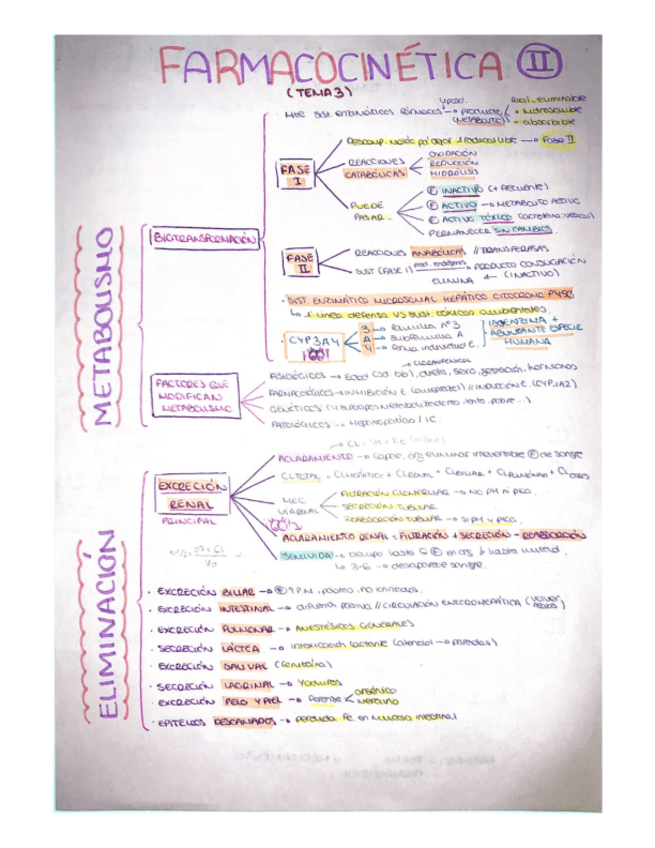 FARMACOCINÉTICA II
(TEMA 3)
METABOLISMO
BIOTRANSFORMACIÓN
FASE I
Fase II
REACCIONES CATABÓLICAS
OXIDACIÓN
REDUCCIÓN
HIDRÓLISIS
PUEDE PASAR
INACTIVO (+ frecuente)
ACTIVO → METABOLITO ACTIVO
ACTIVO TÓXICO
PERMANECER SIN CAMBIOS.
FASE II
REACCIONES ANABÓLICAS // TRANSFERASAS
SUST (FASE I) → PRODUCTO CONJUGACIÓN
ELIMINA ← (INACTIVO)
· SIST. ENZIMÁTICO MICROSOMAL HEPÁTICO CITOCROMO P450
↳ 1ª línea defensa VS sust. tóxicas ambientales.
· CYP3A4
3 → familia nº3
A → subfamilia A
4 → forma individual E.
ISOENZIMA +
ABUNDANTE ESPECIE
HUMANA
FACTORES QUE
MODIFICAN
METABOLISMO
FISIOLÓGICOS → Edad
dieta, sexo, gestación, hormonas
FARMACOLÓGICOS → INHIBICIÓN E. (omeprazol) // INDUCCIÓN E. (CYP1A2)
GENÉTICOS
PATOLÓGICOS → Hepatopatías / IC.
ELIMINACIÓN
EXCRECIÓN
RENAL
PRINCIPAL
ACLARAMIENTO → Capac. org eliminar irreversible de sangre
CL TOTAL = CL HEPÁTICO + CL RENAL + CL BILIAR + CL PULMONAR + CL OTROS
FILTRACIÓN GLOMERULAR → NO PH NI PKa.
SECRECIÓN TUBULAR
REABSORCIÓN TUBULAR → SI PH Y PKa.
ACLARAMIENTO RENAL = FILTRACIÓN + SECRECIÓN - REABSORCIÓN
SEMIVIDA → tiempo hasta
↳ 3-6 → desaparece sangre.
· EXCRECIÓN BILIAR → ↑P.M, polares, no ionizados.
· EXCRECIÓN INTESTINAL → difusión pasiva // CIRCULACIÓN ENTEROHEPÁTICA
· EXCRECIÓN PULMONAR → ANESTÉSICOS GENERALES
· SECRECIÓN LÁCTEA → intoxicación lactante
· EXCRECIÓN SALIVAL (fenitoína)
· SECRECIÓN LAGRIMAL → Yoduros
· EXCRECIÓN PELO Y PIEL → Forense
arsénico
mercurio
· EPITELIOS DESCAMADOS → pérdida Fe en mucosa intestinal